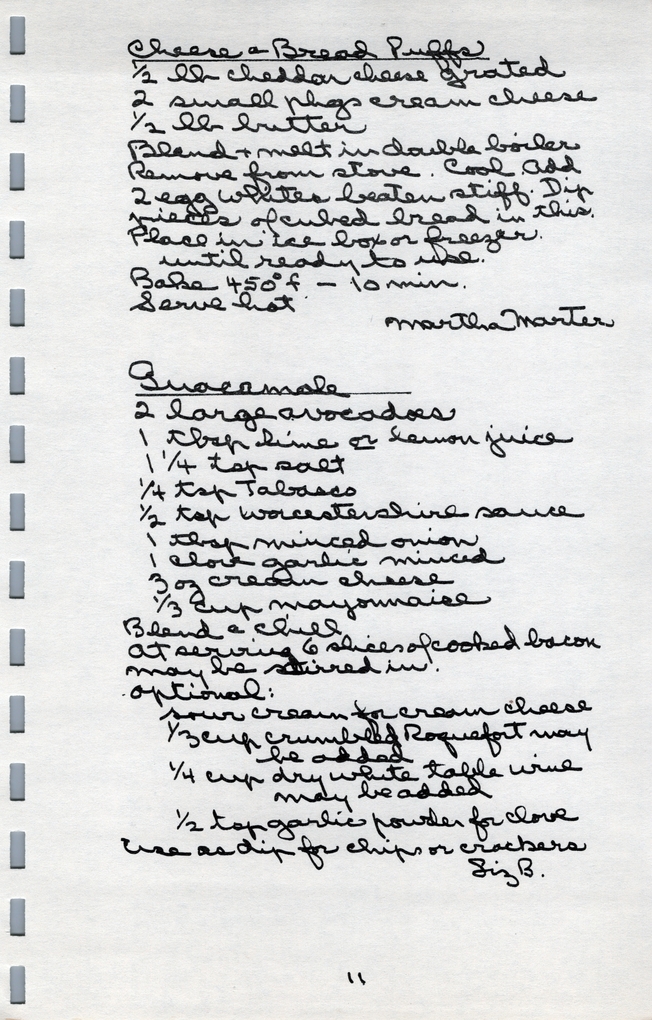 Cheese & Bread Puffs
½ lb cheddar cheese grated
2 small pkgs cream cheese
½ lb butter
Blend + melt in double boiler
Remove from stove. Cool Add
2 egg whites beaten stiff. Dip
pieces of cubed bread in this.
Place in ice box or freezer.
until ready to use.
Bake 450°f — 10 min.
Serve hot
Martha Marter
Guacamole
2 large avocadoes
1 tbsp lime or lemon juice
1 1/4 tsp salt
1/4 tsp Tabasco
½ tsp Worcestershire sauce
1 tbsp minced onion
1 clove garlic minced
3 oz cream cheese
1/3 cup mayonnaise
Blend & chill
At serving 6 slices of cooked bacon
may be stirred in.
optional:
sour cream for cream cheese
1/3 cup crumbled Roquefort may
be added
1/4 cup dry white table wine
may be added
½ tsp garlic powder for clove
Use as dip for chips or crackers
Liz B.
11